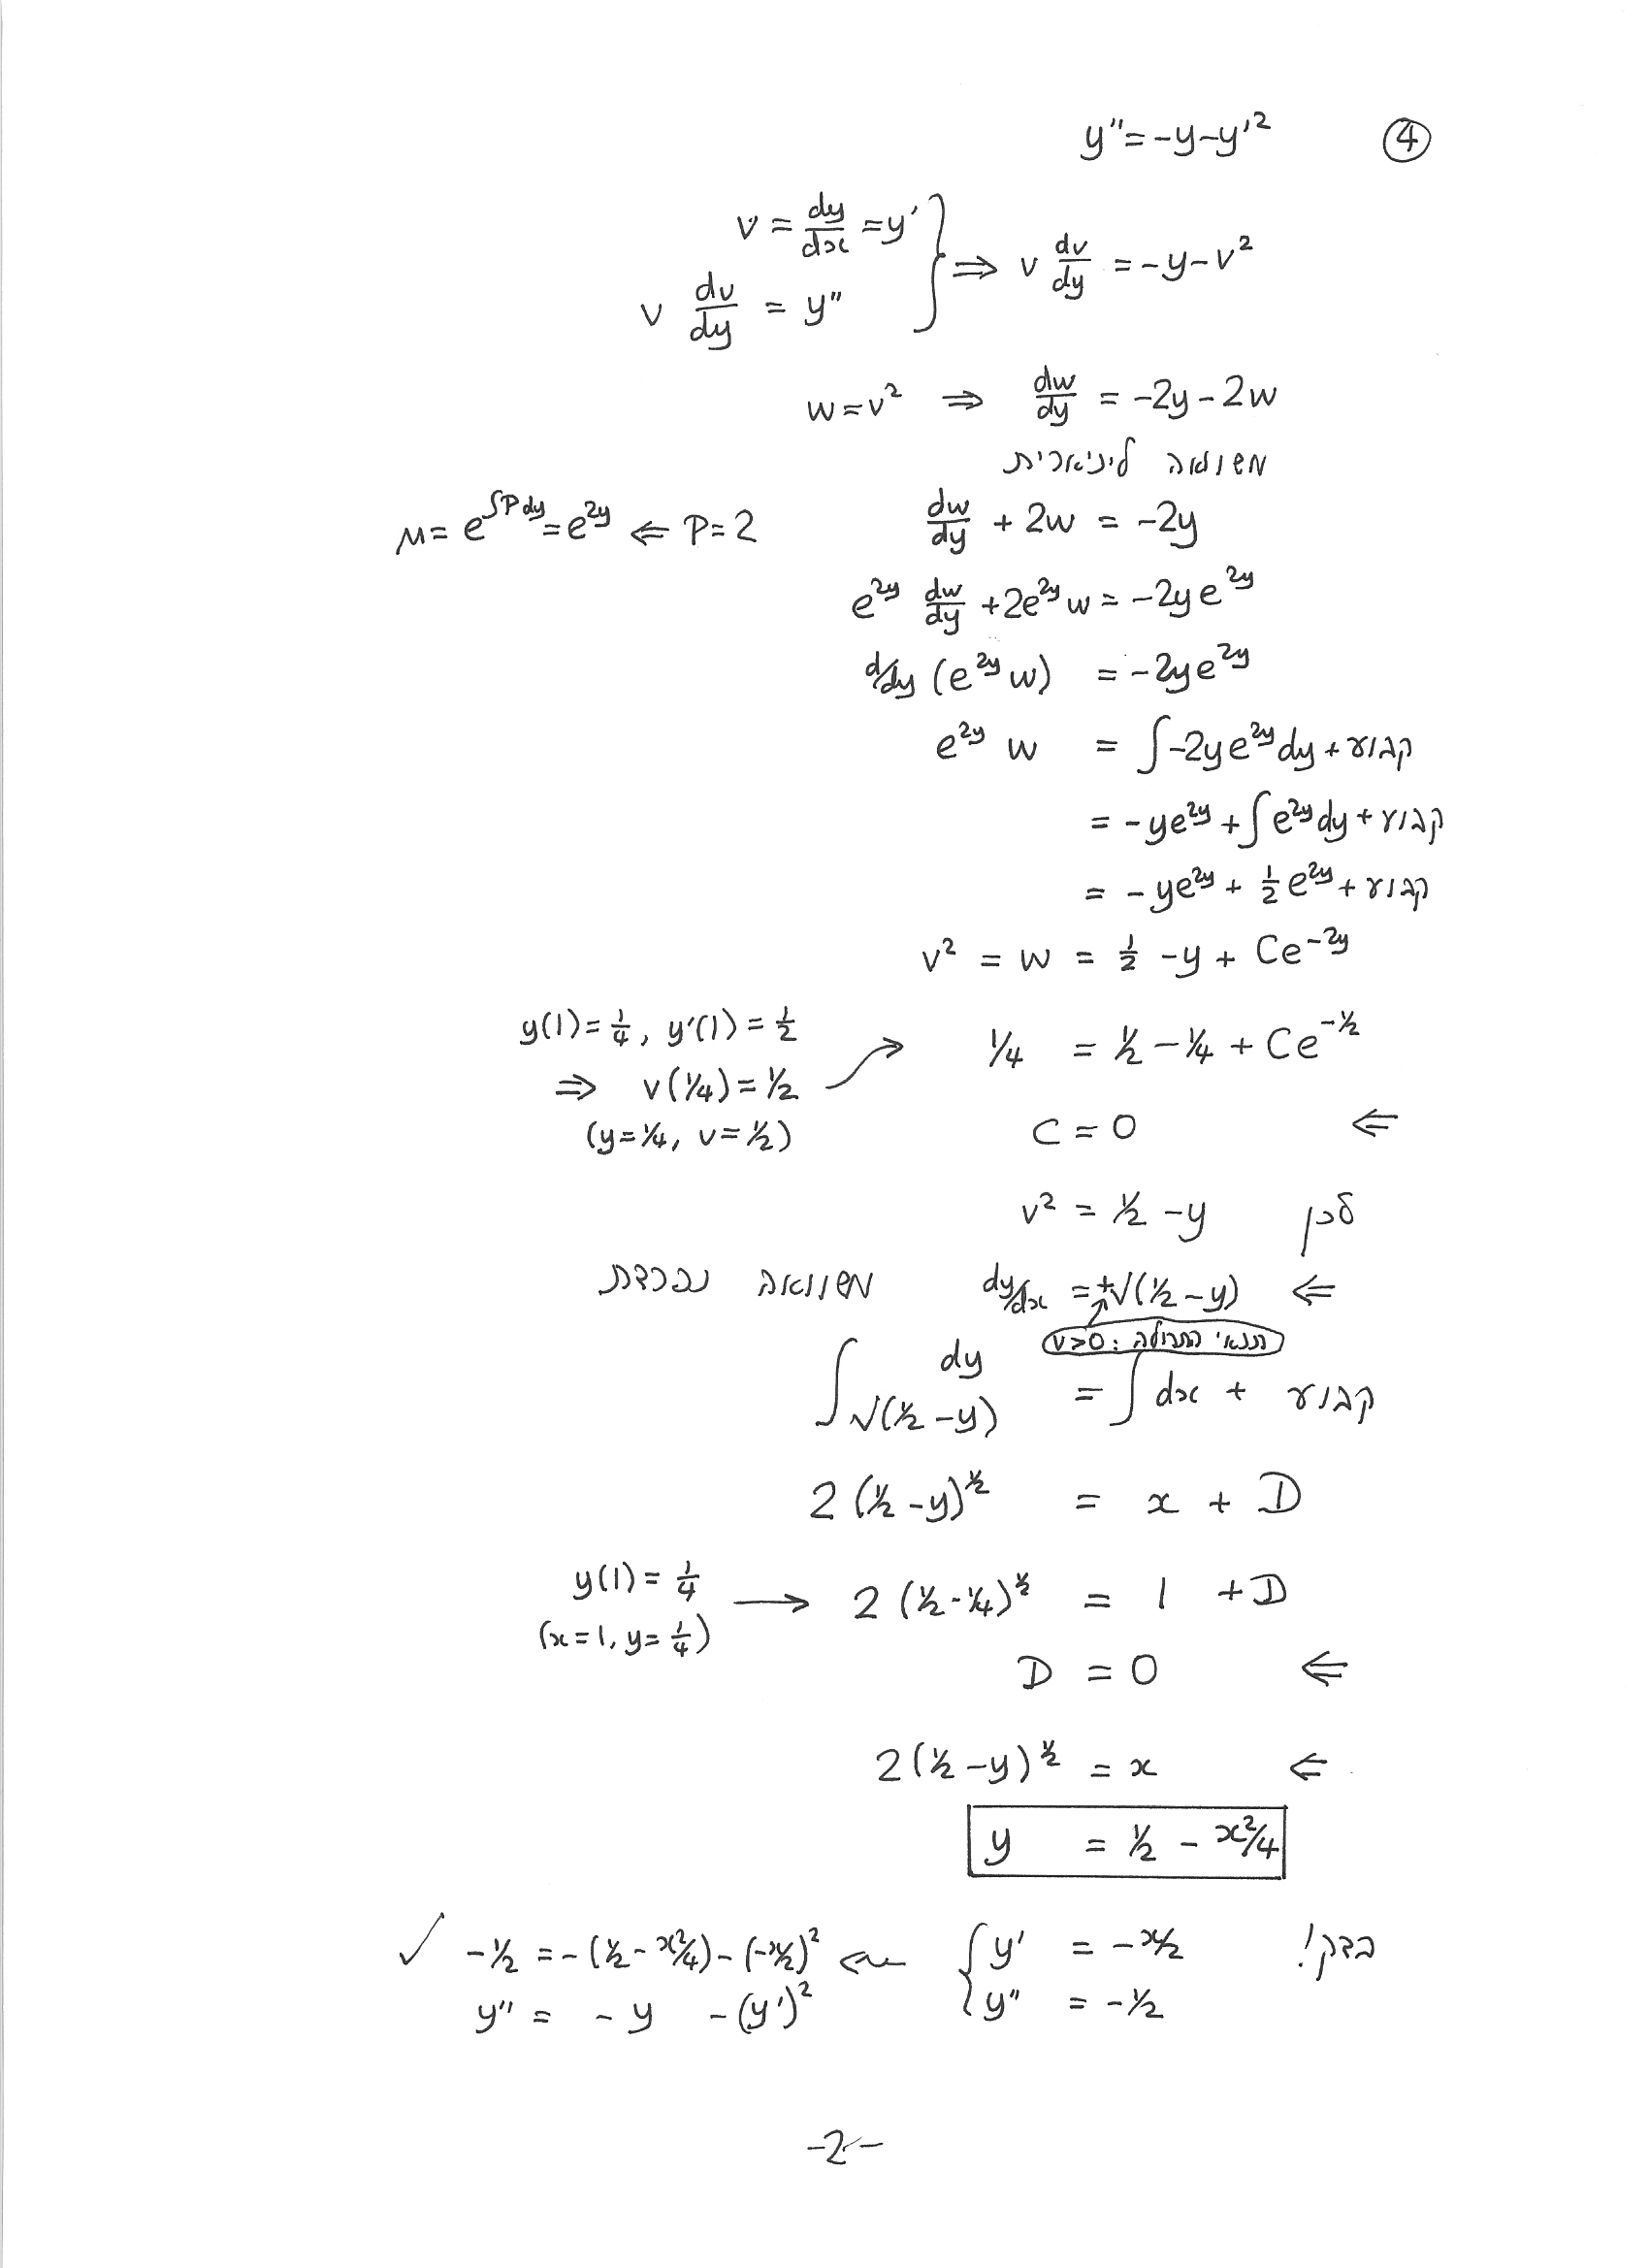 ④ y''=-y-y'²
v = dy/dx = y'
v dv/dy = y'' } ⇒ v dv/dy = -y-v²
w=v² ⇒ dw/dy = -2y-2w
משוואה ליניארית
dw/dy + 2w = -2y
μ= e^∫Pdy = e^2y ⇐ P=2
e^2y dw/dy +2e^2y w = -2ye^2y
d/dy (e^2y w) = -2ye^2y
e^2y w = ∫-2ye^2y dy + קבוע
= -ye^2y + ∫e^2y dy + קבוע
= -ye^2y + ½e^2y + קבוע
v² = w = ½ -y + Ce^-2y
y(1)=¼, y'(1)=½
⇒ v(¼)=½
(y=¼, v=½)
¼ = ½-¼ + Ce^-½
⇐ C=0
לכן v² = ½-y
⇐ dy/dx = +√(½-y) משוואה נפרדת
תנאי התחלה: v>0
∫ dy/√(½-y) = ∫dx + קבוע
2(½-y)^½ = x + D
y(1)=¼
(x=1, y=¼)
→ 2(½-¼)^½ = 1 +D
⇐ D = 0
⇐ 2(½-y)^½ = x
y = ½ - x²/4
בדק!
{ y' = -x/2
y'' = -½
✓ -½ = -(½-x²/4)-(-x/2)² ⇐
y'' = -y -(y')²
-2-